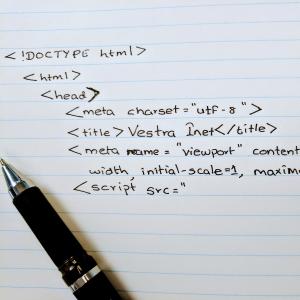 <!DOCTYPE html>
<html>
<head>
<meta charset="utf-8">
<title>Vestra Înet</title>
<meta name="viewport" content
width, initial-scale=1, maxim
<script src="